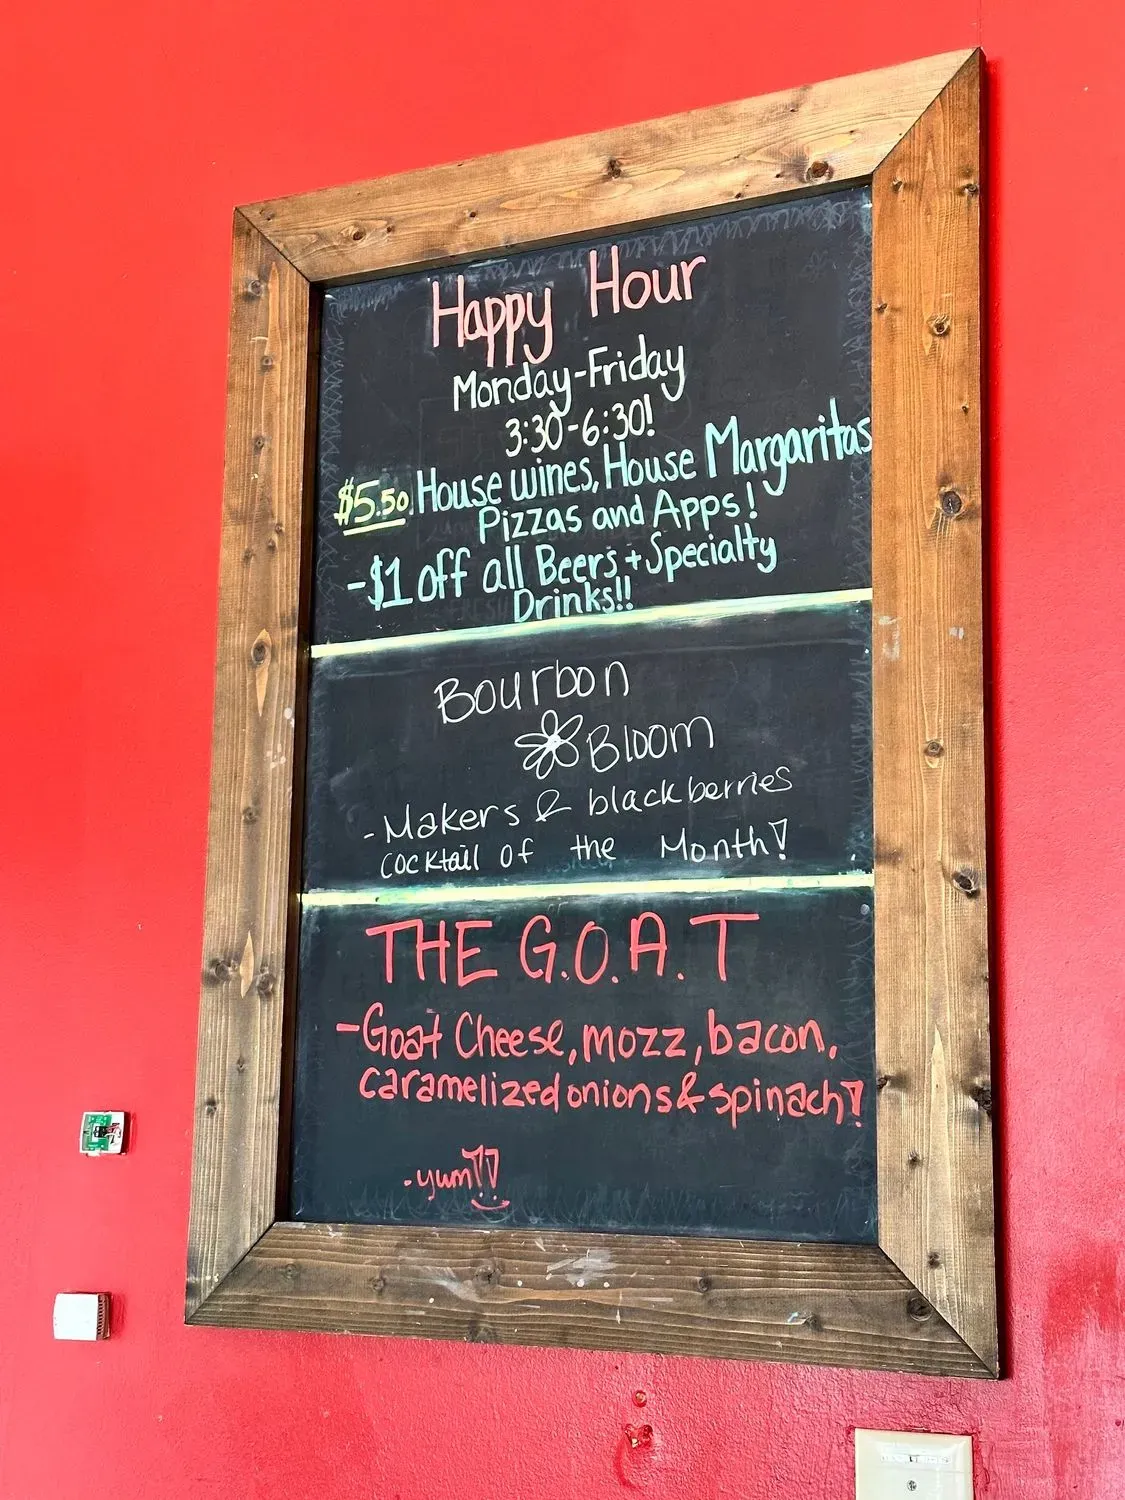 Happy Hour
Monday-Friday
3:30-6:30!
$5.50 House wines, House Margaritas
Pizzas and Apps!
-$1 off all Beers + Specialty
Drinks!!
Bourbon
Bloom
-Makers & blackberries
cocktail of the Month!
THE G.O.A.T
-Goat Cheese, mozz, bacon,
caramelized onions & spinach!
.yum!!